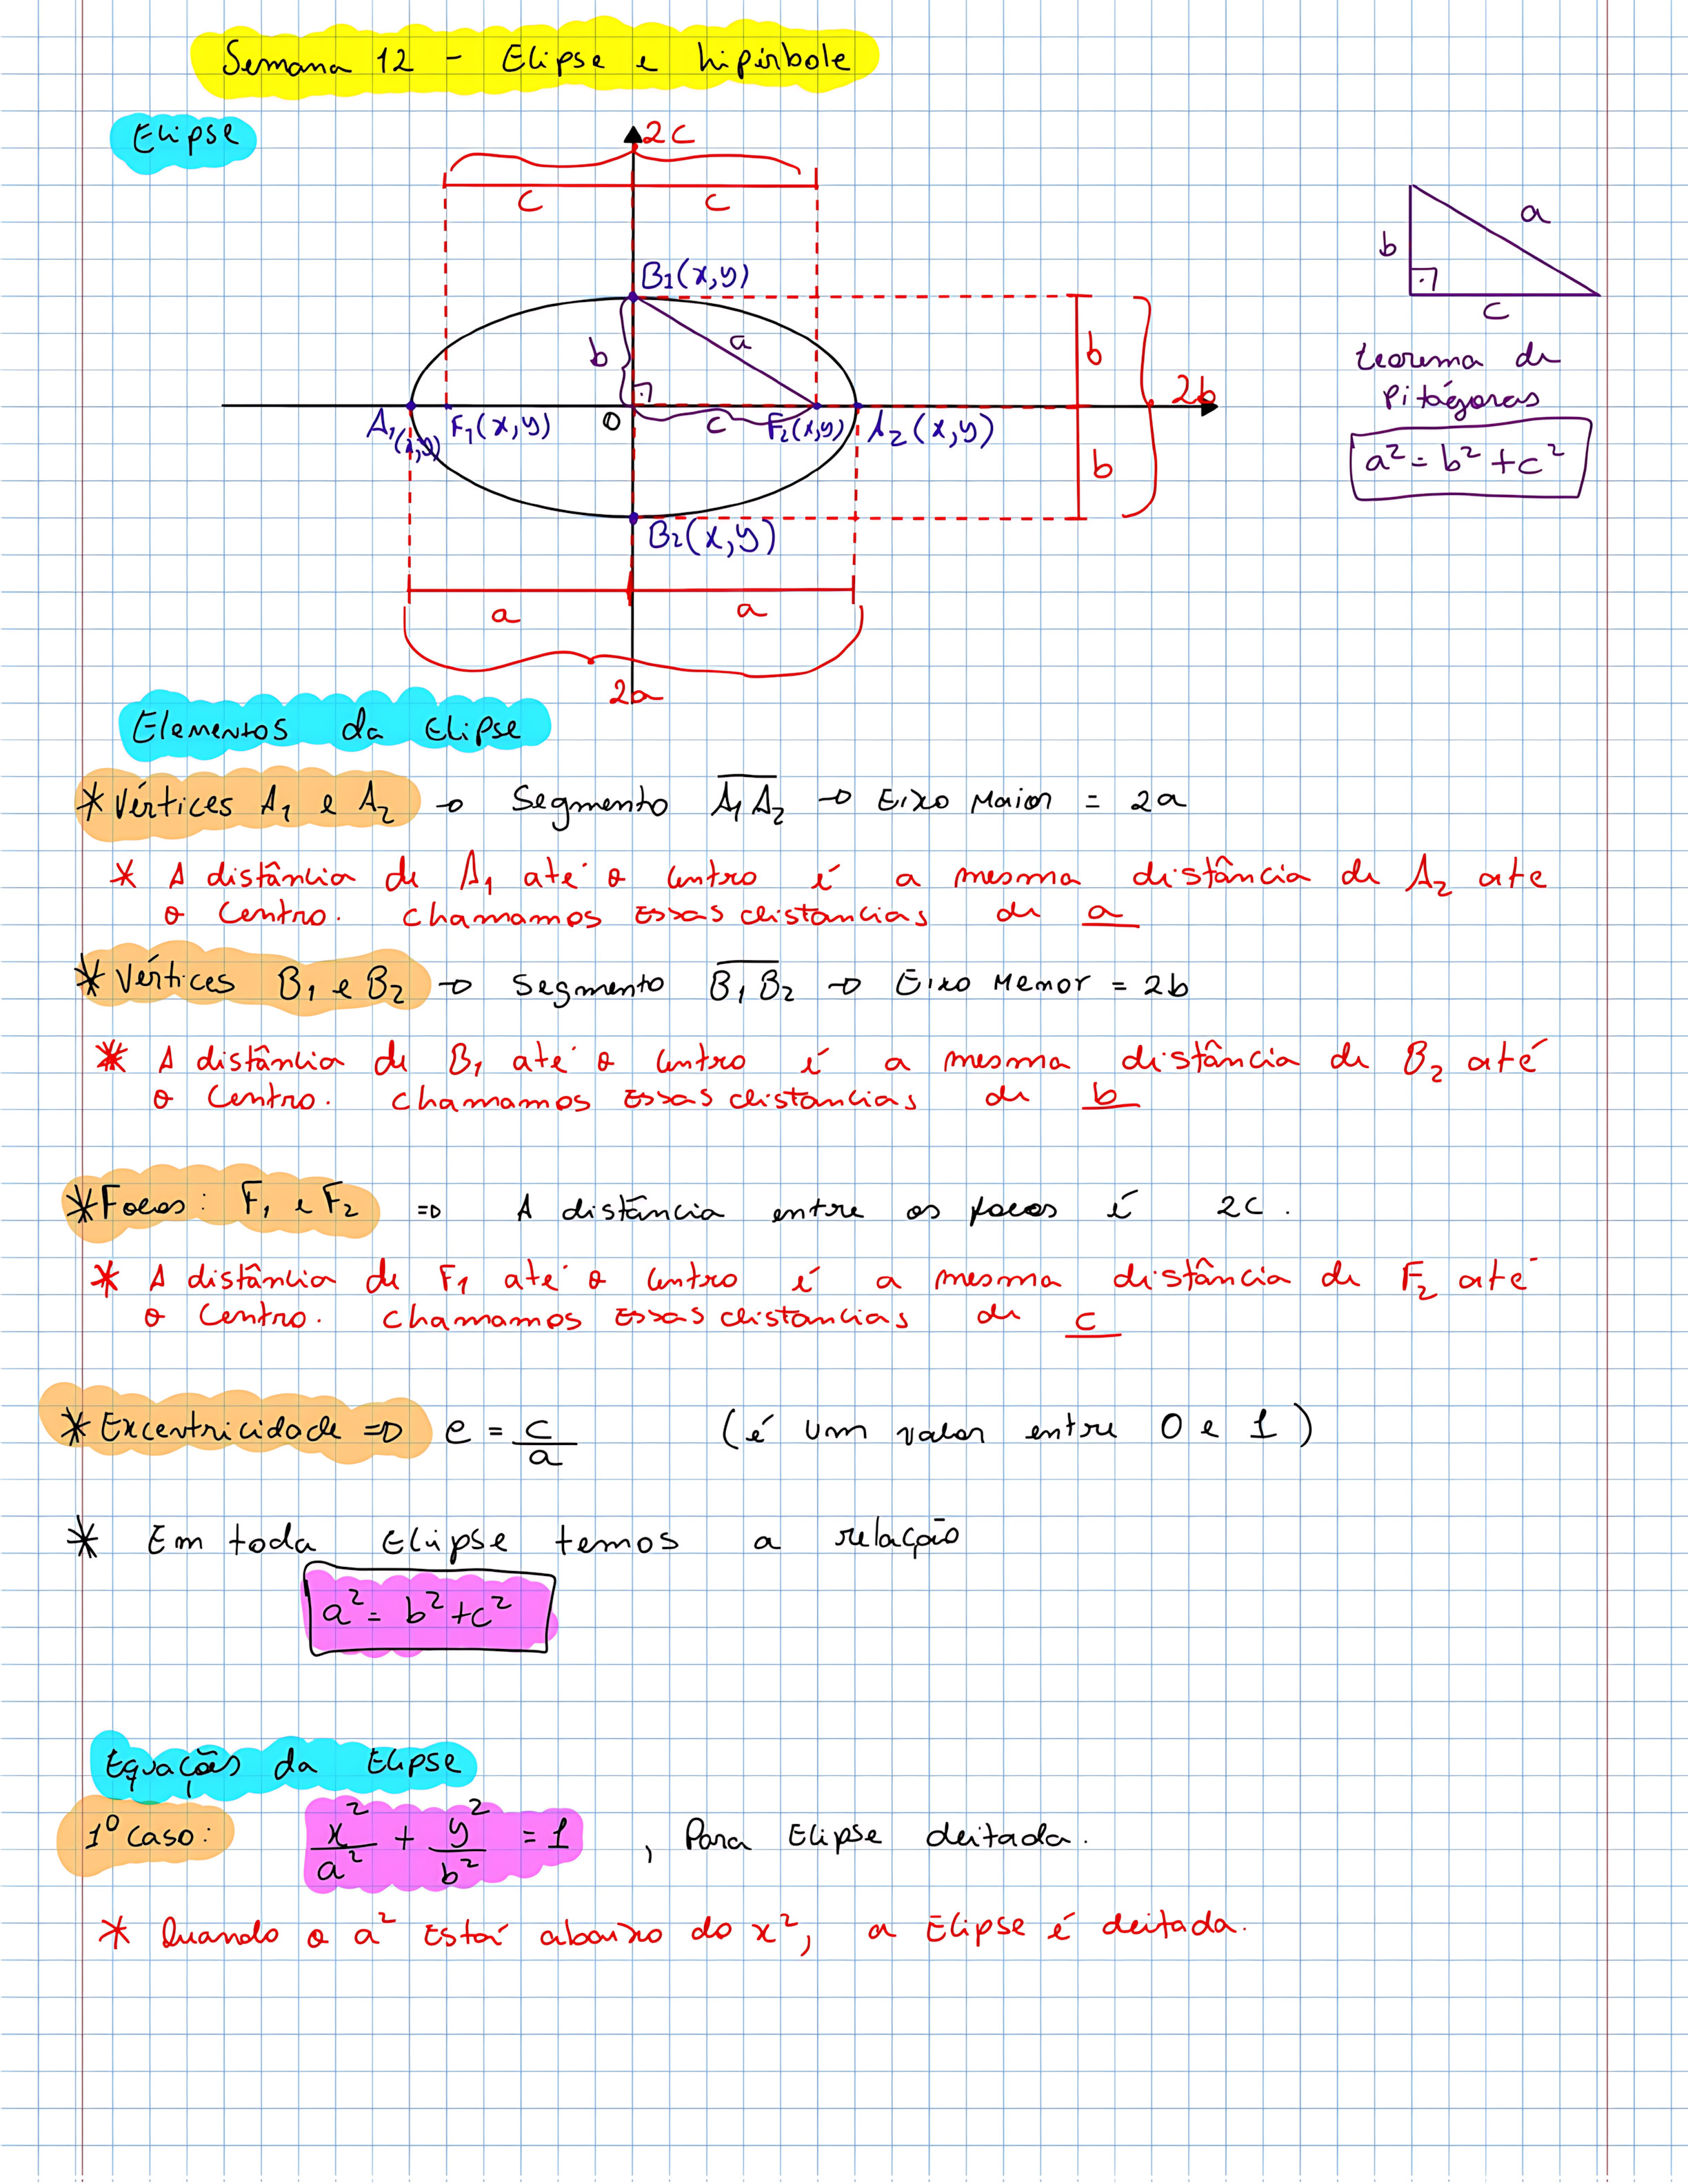 Semana 12 - Elipse e hipérbole
Elipse
2c
c c
B₁(x,y)
b a
b
2b
A₁(x,y) F₁(x,y) O c F₂(x,y) A₂(x,y)
b
B₂(x,y)
a a
2a
b a
c
teorema de
Pitágoras
a² = b² + c²
Elementos da Elipse
* Vértices A₁ e A₂ → Segmento A̅₁A̅₂ → Eixo Maior = 2a
* A distância de A₁ até o centro é a mesma distância de A₂ até
o centro. chamamos essas distancias de a
* Vértices B₁ e B₂ → Segmento B̅₁B̅₂ → Eixo Menor = 2b
* A distância de B₁ até o centro é a mesma distância de B₂ até
o centro. chamamos essas distancias de b
* Focos: F₁ e F₂ ⇒ A distância entre os focos é 2c.
* A distância de F₁ até o centro é a mesma distância de F₂ até
o centro. chamamos essas distancias de c
* Excentricidade ⇒ e = c/a (é um valor entre 0 e 1)
* Em toda Elipse temos a relação
a² = b² + c²
Equações da Elipse
1º caso: x²/a² + y²/b² = 1 , Para Elipse deitada.
* Quando o a² está abaixo do x², a Elipse é deitada.